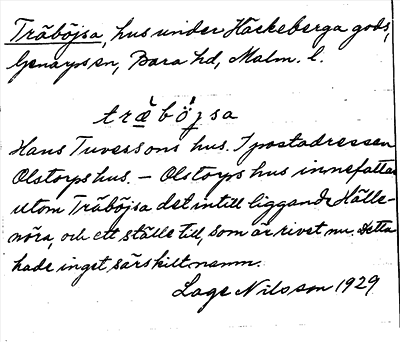 Träböjsa, hus under Häckeberga gods,
Genarps sn, Bara hd, Malm. l.
træ̀bö́jsa
Hans Tuvessons hus. I postadressen
Olstorps hus. – Olstorps hus innefattar
utom Träböjsa det intill liggande Hälle-
nöra, och ett ställe till, som är rivet nu. Detta
hade inget särskilt namn.
Lage Nilsson 1929